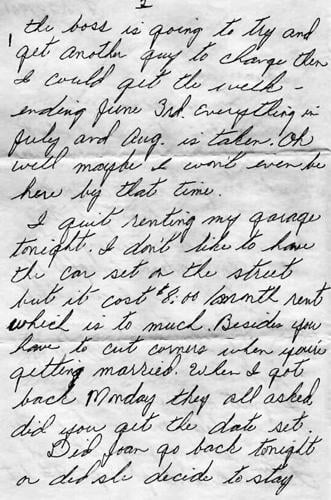 the boss is going to try and
get another guy to change then
I could get the week-
ending June 3rd. Everything in
July and Aug. is taken. Oh
well maybe I won't even be
here by that time.
I quit renting my garage
tonight. I don't like to have
the car set on the street
but it cost $8.00/month rent
which is to much. Besides you
have to cut corners when you're
getting married. When I got
back Monday they all asked
did you get the date set.
Did Joan go back tonight
or did she decide to stay